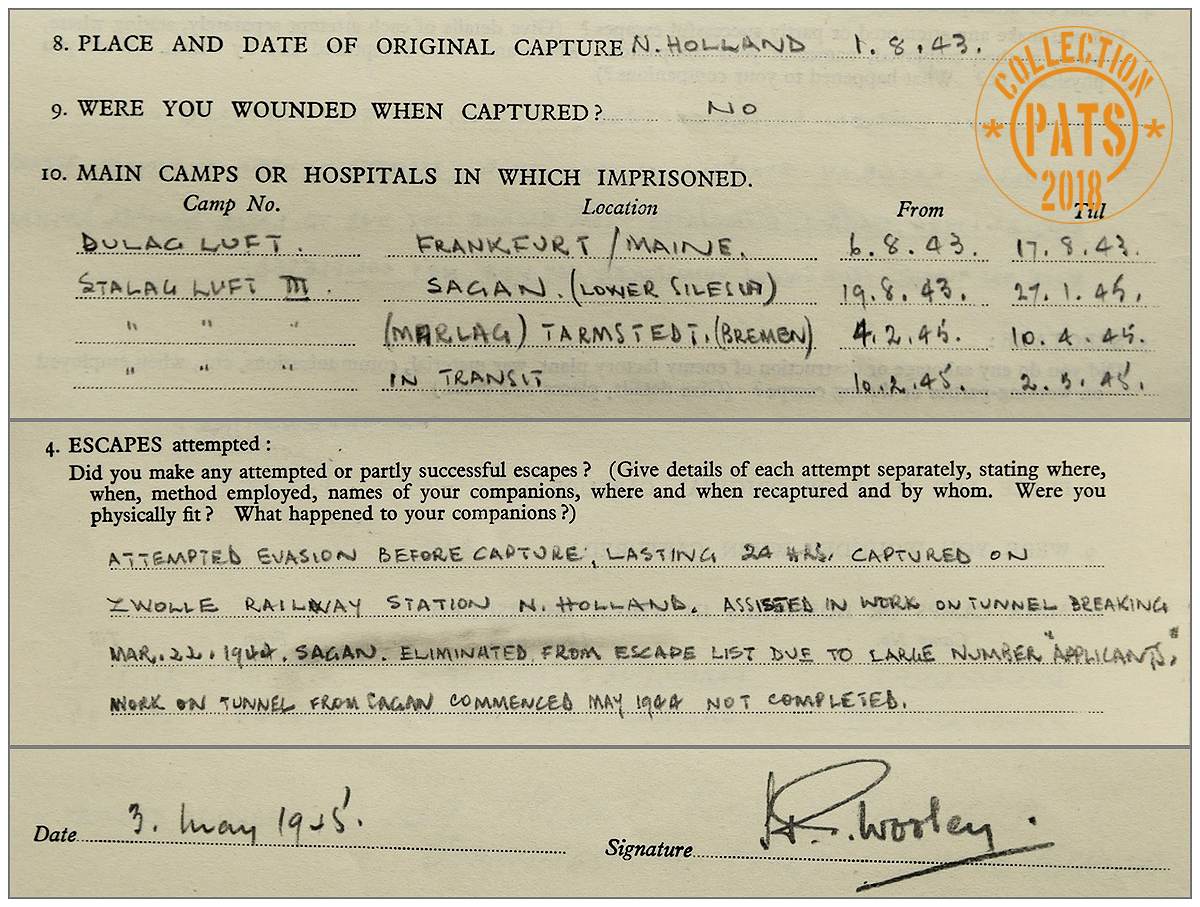 8. PLACE AND DATE OF ORIGINAL CAPTURE N. HOLLAND 1.8.43.
COLLECTION
PATS
2018
9. WERE YOU WOUNDED WHEN CAPTURED? NO
10. MAIN CAMPS OR HOSPITALS IN WHICH IMPRISONED.
Camp No. Location From Till
DULAG LUFT. FRANKFURT/MAINE. 6.8.43. 17.8.43.
STALAG LUFT III. SAGAN. (LOWER SILESIA) 19.8.43. 27.1.45.
" " " (MARLAG) TARMSTEDT. (BREMEN) 4.2.45. 10.4.45.
" " " IN TRANSIT 10.2.45. 2.5.45.
4. ESCAPES attempted:
Did you make any attempted or partly successful escapes? (Give details of each attempt separately, stating where,
when, method employed, names of your companions, where and when recaptured and by whom. Were you
physically fit? What happened to your companions?)
ATTEMPTED EVASION BEFORE CAPTURE, LASTING 24 HRS. CAPTURED ON
ZWOLLE RAILWAY STATION N. HOLLAND. ASSISTED IN WORK ON TUNNEL BREAKING
MAR. 22. 1944. SAGAN. ELIMINATED FROM ESCAPE LIST DUE TO LARGE NUMBER "APPLICANTS".
WORK ON TUNNEL FROM SAGAN COMMENCED MAY 1944 NOT COMPLETED.
Date 3. May 1945. Signature Wooley.